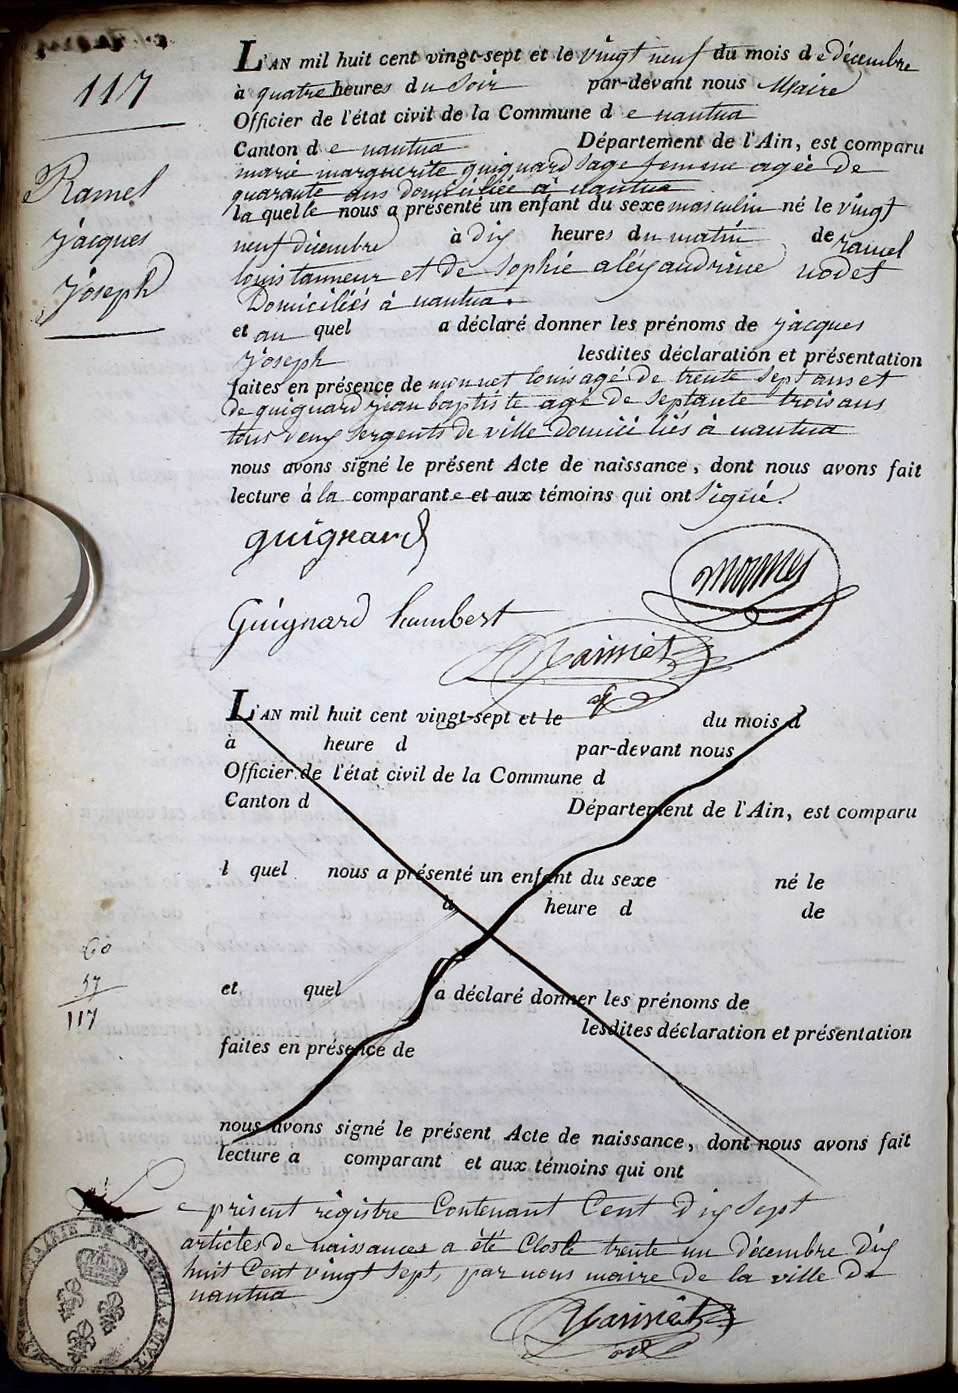 117
Ramel
Jacques
Joseph
L'AN mil huit cent vingt-sept et le vingt neuf du mois de décembre
à quatre heures du soir par-devant nous Maire
Officier de l'état civil de la Commune de nantua
Canton de nantua Département de l'Ain, est comparu
marie marguerite guignard sage femme agée de
quarante ans Domiciliée à nantua
la quelle nous a présenté un enfant du sexe masculin né le vingt
neuf décembre à dix heures du matin de ramel
louis tanneur et de Sophie aléxandrine nodet
Domiciliés à nantua.
et au quel a déclaré donner les prénoms de jacques
joseph lesdites déclaration et présentation
faites en présence de monnet louis agé de trente sept ans et
de guignard jean baptiste agé de septante trois ans
tous deux sergents de ville domiciliés à nantua
nous avons signé le présent Acte de naissance, dont nous avons fait
lecture à la comparante et aux témoins qui ont signé.
guignard
Guignard humbert
L'AN mil huit cent vingt-sept et le du mois d
à heure d par-devant nous
Officier de l'état civil de la Commune d
Canton d Département de l'Ain, est comparu
l quel nous a présenté un enfant du sexe né le
à heure d de
60
57
117
et quel a déclaré donner les prénoms de
lesdites déclaration et présentation
faites en présence de
nous avons signé le présent Acte de naissance, dont nous avons fait
lecture a comparant et aux témoins qui ont
Le présent régistre Contenant Cent dix Sept
articles de naissances a été Clos le trente un décembre dix
huit Cent vingt Sept, par nous maire de la ville de
nantua
MAIRIE DE NANTUA